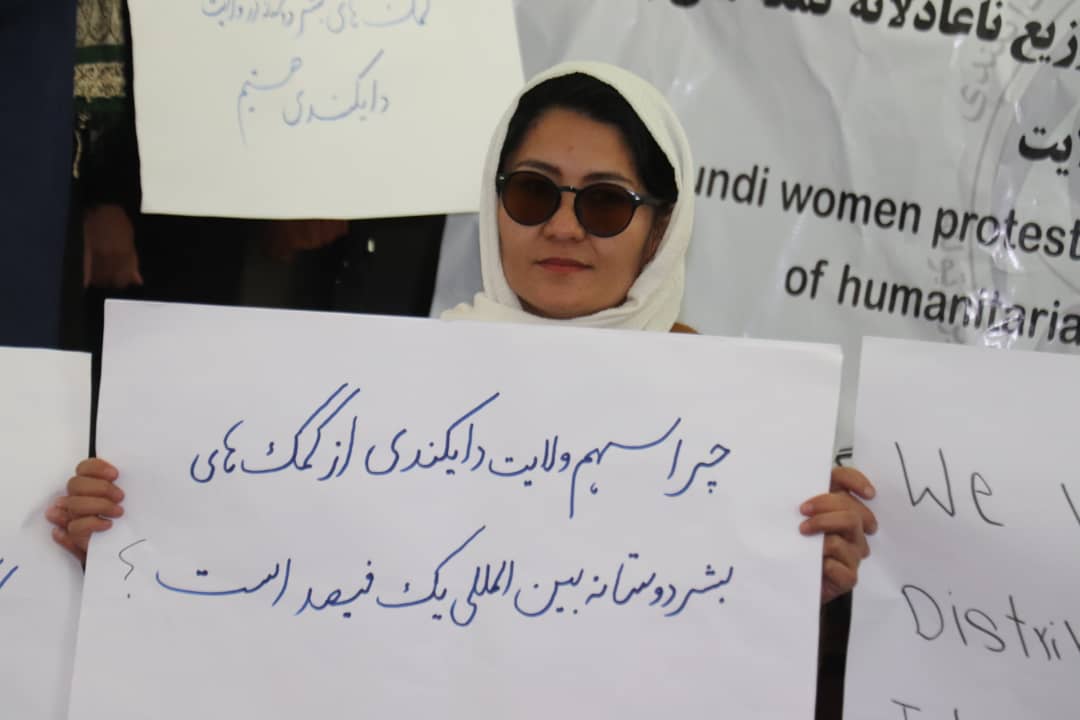 کمک های بشردوستانه در ولایت
دایکندی هستیم
زیع ناعادلانه کمک
لایت
undi women protest
of humanitaria
چرا سهم ولایت دایکندی از کمک های
بشردوستانه بین المللی یک فیصد است ؟
We
Distri